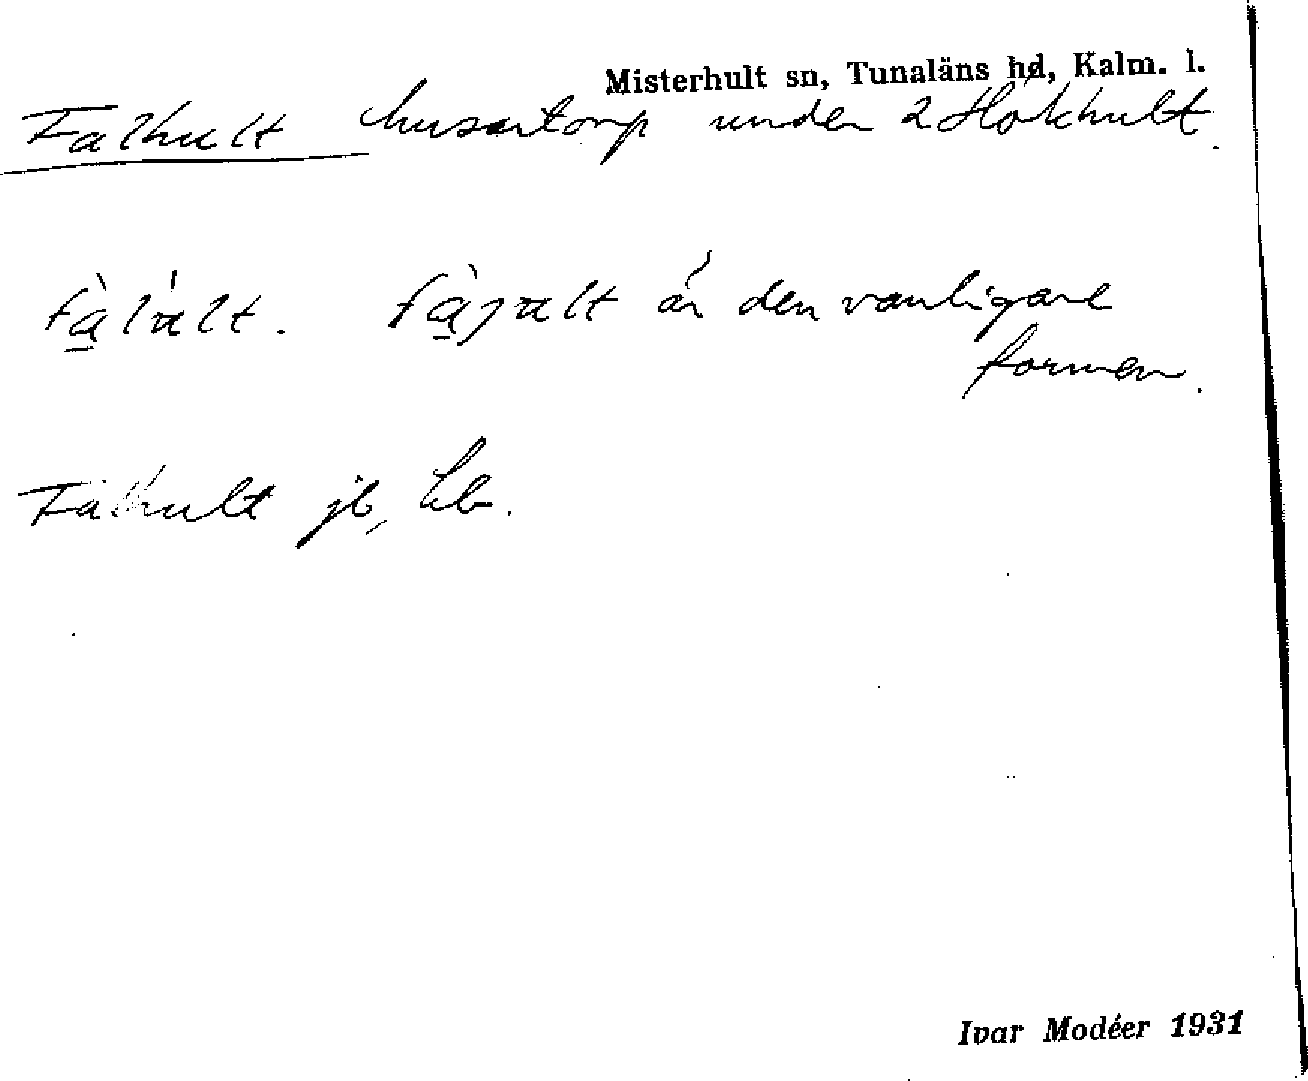 Misterhult sn, Tunaläns hd, Kalm. l.
Falhult husartorp under 2 Hökhult.
är den vanligare
formen.
Falhult jb,
Ivar Modéer 1931